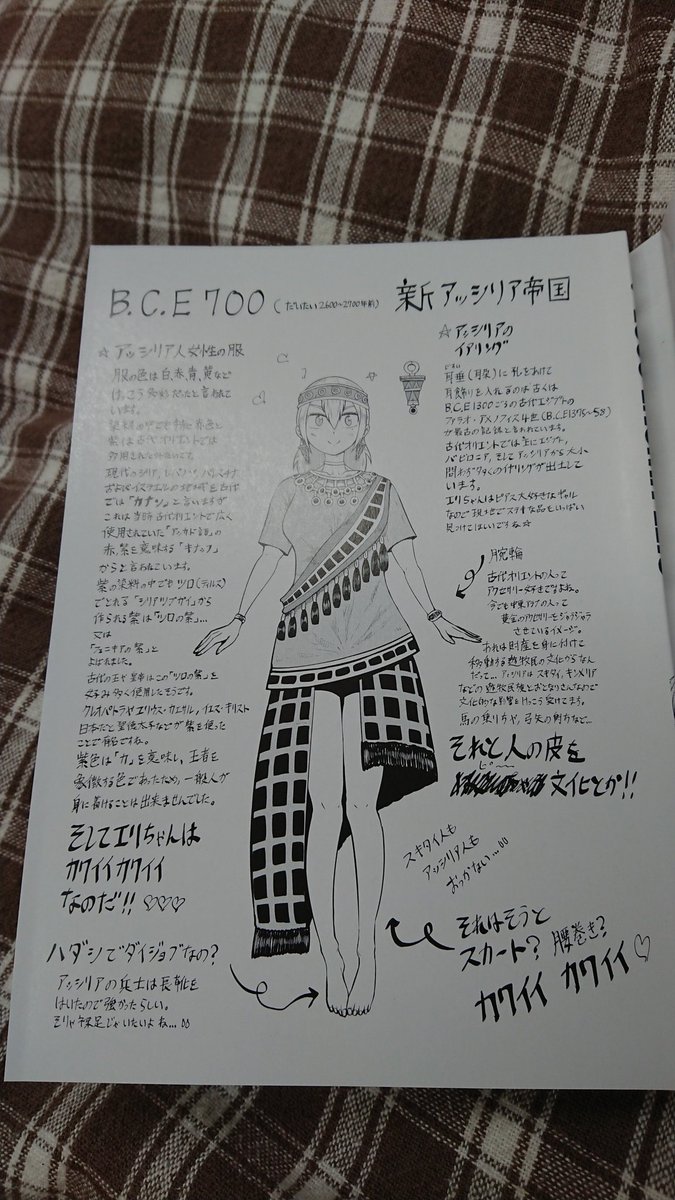 B.C.E 700 (だいたい2600~2700年前) 新アッシリア帝国
☆ アッシリア人女性の服
服の色は白、赤、青、黄など
けっこう多彩だったと言われて
います。
染料の中でも特に赤色と
紫は古代オリエントでは
多用されて
現代のシリア、レバノン、パレスチナ
およびイスラエルの地域を古代
では「カナン」と言いますが
これは当時古代オリエントで広く
使用されていた「アッカド語」の
赤、紫を意味する「キナッフ」
からと言われています。
紫の染料の中でもツロ(ティルス)
でとれる「シリアツブガイ」から
作られる紫は「ツロの紫」…
又は
「フェニキアの紫」と
よばれました。
古代の王や皇帝はこの「ツロの紫」を
好み多く使用したそうです。
クレオパトラやユリウス・カエサル、イエス・キリスト
日本だと聖徳太子などが紫を使った
ことで有名ですね。
紫色は「力」を意味し、王者を
象徴する色であったため、一般人が
身に着けることは出来ませんでした。
そしてエリちゃんは
カワイイカワイイ
なのだ!! ♡♡♡
ハダシでダイジョブなの?
アッシリアの兵士は長靴を
はいたので強かったらしい。
そりゃ裸足じゃいたいよね…
☆ アッシリアの
イアリング
耳垂(耳朶)に孔をあけて
耳飾りを入れるのは古くは
B.C.E1300ごろの古代エジプトの
ファラオ・アメノフィス4世(B.C.E1375~58)
が最古の記録と言われています。
古代オリエントでは主にエジプト、
バビロニア、そしてアッシリアから大小
問わず多くのイヤリングが出土して
います。
エリちゃんはピアス大好きなギャル
なので現地でステキな品をいっぱい
見つけてほしいですね☆
腕輪
古代オリエントの人って
アクセサリー好きですよね。
今でも中東アラブの人って
黄金のアクセサリーをジャラジャラ
させているイメージ。
あれは財産を身に付けて
移動する遊牧民の文化からなん
だって… アッシリアはスキタイ、キンメリア
などの遊牧民族とおとなりさんなので
文化的な影響をけっこう受けてます。
馬の乗り方や、弓矢の射方など…
それと人の皮を
ピ〜〜
文化とか!!
スキタイ人も
アッシリア人も
おっかない…
それはそうと
スカート? 腰巻き?
カワイイ カワイイ♡